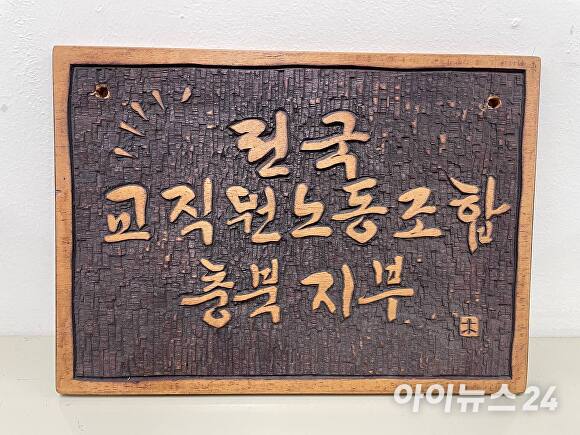 전국
교직원노동조합
충북지부
아이뉴스24